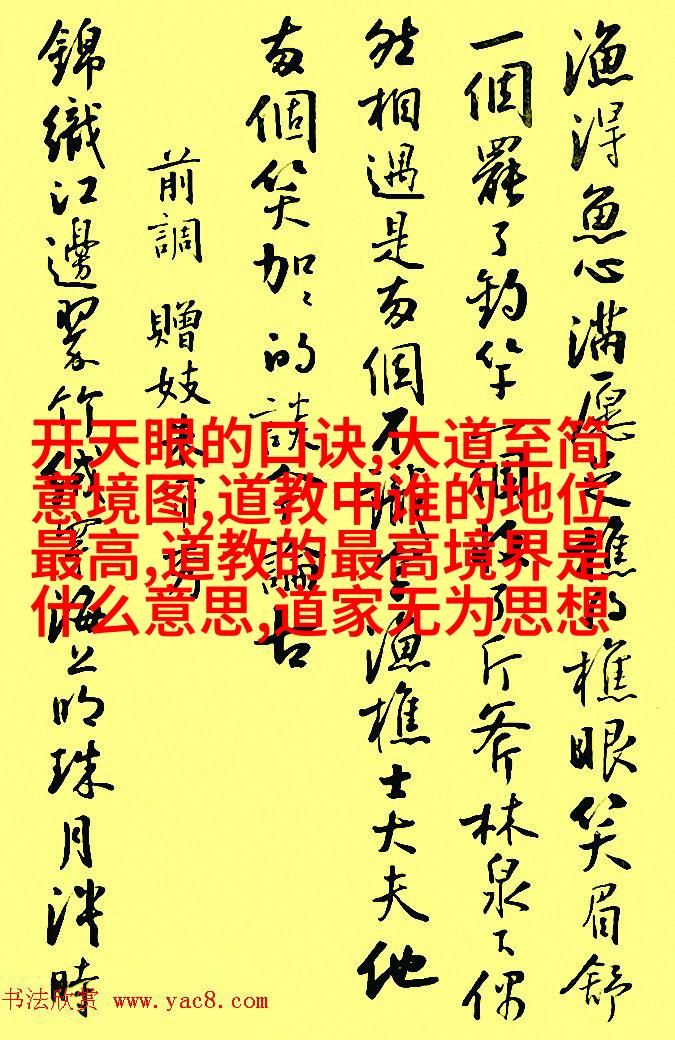 漁得魚心滿愿足樵得樵眼笑眉舒
一個罷了釣竿一個收了斤斧林泉下偶
然相遇是兩個不識字漁樵士大夫他
兩個笑加加的談今論古
前調 贈妓朱
錦織江邊翠竹絨穿海上明珠月淡時
开天眼的口诀,大道至简
意境图,道教中谁的地位
最高,道教的最高境界是
什么意思,道家无为思想
书法欣赏 www.yac8.com